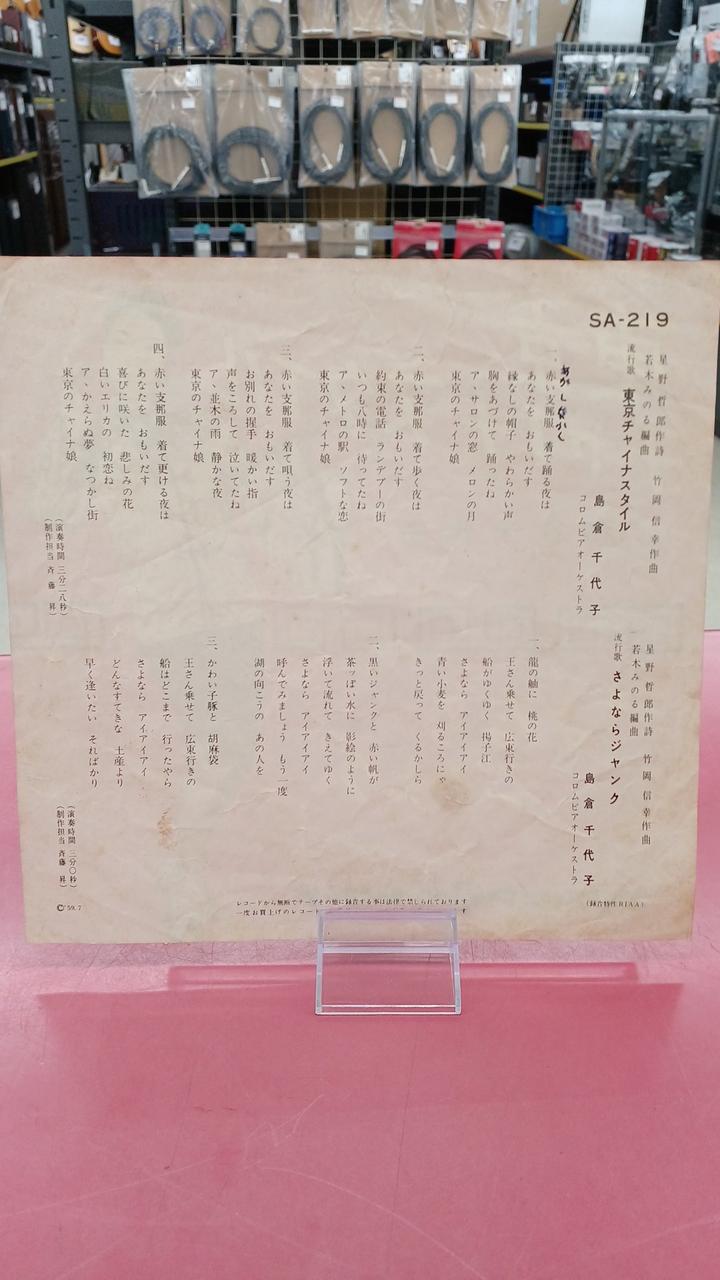 SA-219
星野哲郎作詩
若木みのる編曲
竹岡信幸作曲
流行歌 東京チャイナスタイル
島倉千代子
コロムビアオーケストラ
一、赤い支那服 着て踊る夜は
あなたを おもいだす
縁なしの帽子 やわらかい声
胸をあづけて 踊ったね
ア、サロンの窓 メロンの月
東京のチャイナ娘
二、赤い支那服 着て歩く夜は
あなたを おもいだす
約束の電話 ランデブーの街
いつも八時に 待ってたね
ア、メトロの駅 ソフトな恋
東京のチャイナ娘
三、赤い支那服 着て唄う夜は
あなたを おもいだす
お別れの握手 暖かい指
声をころして 泣いてたね
ア、並木の雨 静かな夜
東京のチャイナ娘
四、赤い支那服 着て更ける夜は
あなたを おもいだす
喜びに咲いた 悲しみの花
白いエリカの 初恋ね
ア、かえらぬ夢 なつかし街
東京のチャイナ娘
(演奏時間 三分二八秒)
(制作担当 斉藤 昇)
星野哲郎作詩
若木みのる編曲
竹岡信幸作曲
流行歌 さよならジャンク
島倉千代子
コロムビアオーケストラ
一、龍の舳に 桃の花
王さん乗せて 広東行きの
船がゆくゆく 揚子江
さよなら アイアイアイ
青い小麦を 刈るころにゃ
きっと戻って くるかしら
二、黒いジャンクと 赤い帆が
茶ッぽい水に 影絵のように
浮いて流れて きえてゆく
さよなら アイアイアイ
呼んでみましょう もう一度
湖の向こうの あの人を
三、かわい子豚と 胡麻袋
王さん乗せて 広東行きの
船はどこまで 行ったやら
さよなら アイアイアイ
どんなすてきな 土産より
早く逢いたい そればかり
(演奏時間 三分〇秒)
(制作担当 斉藤 昇)
(録音特性RIAA)
レコードから無断でテープその他に録音する事は法律で禁じられております
一度お買上げのレコード
Ⓒ'59.7